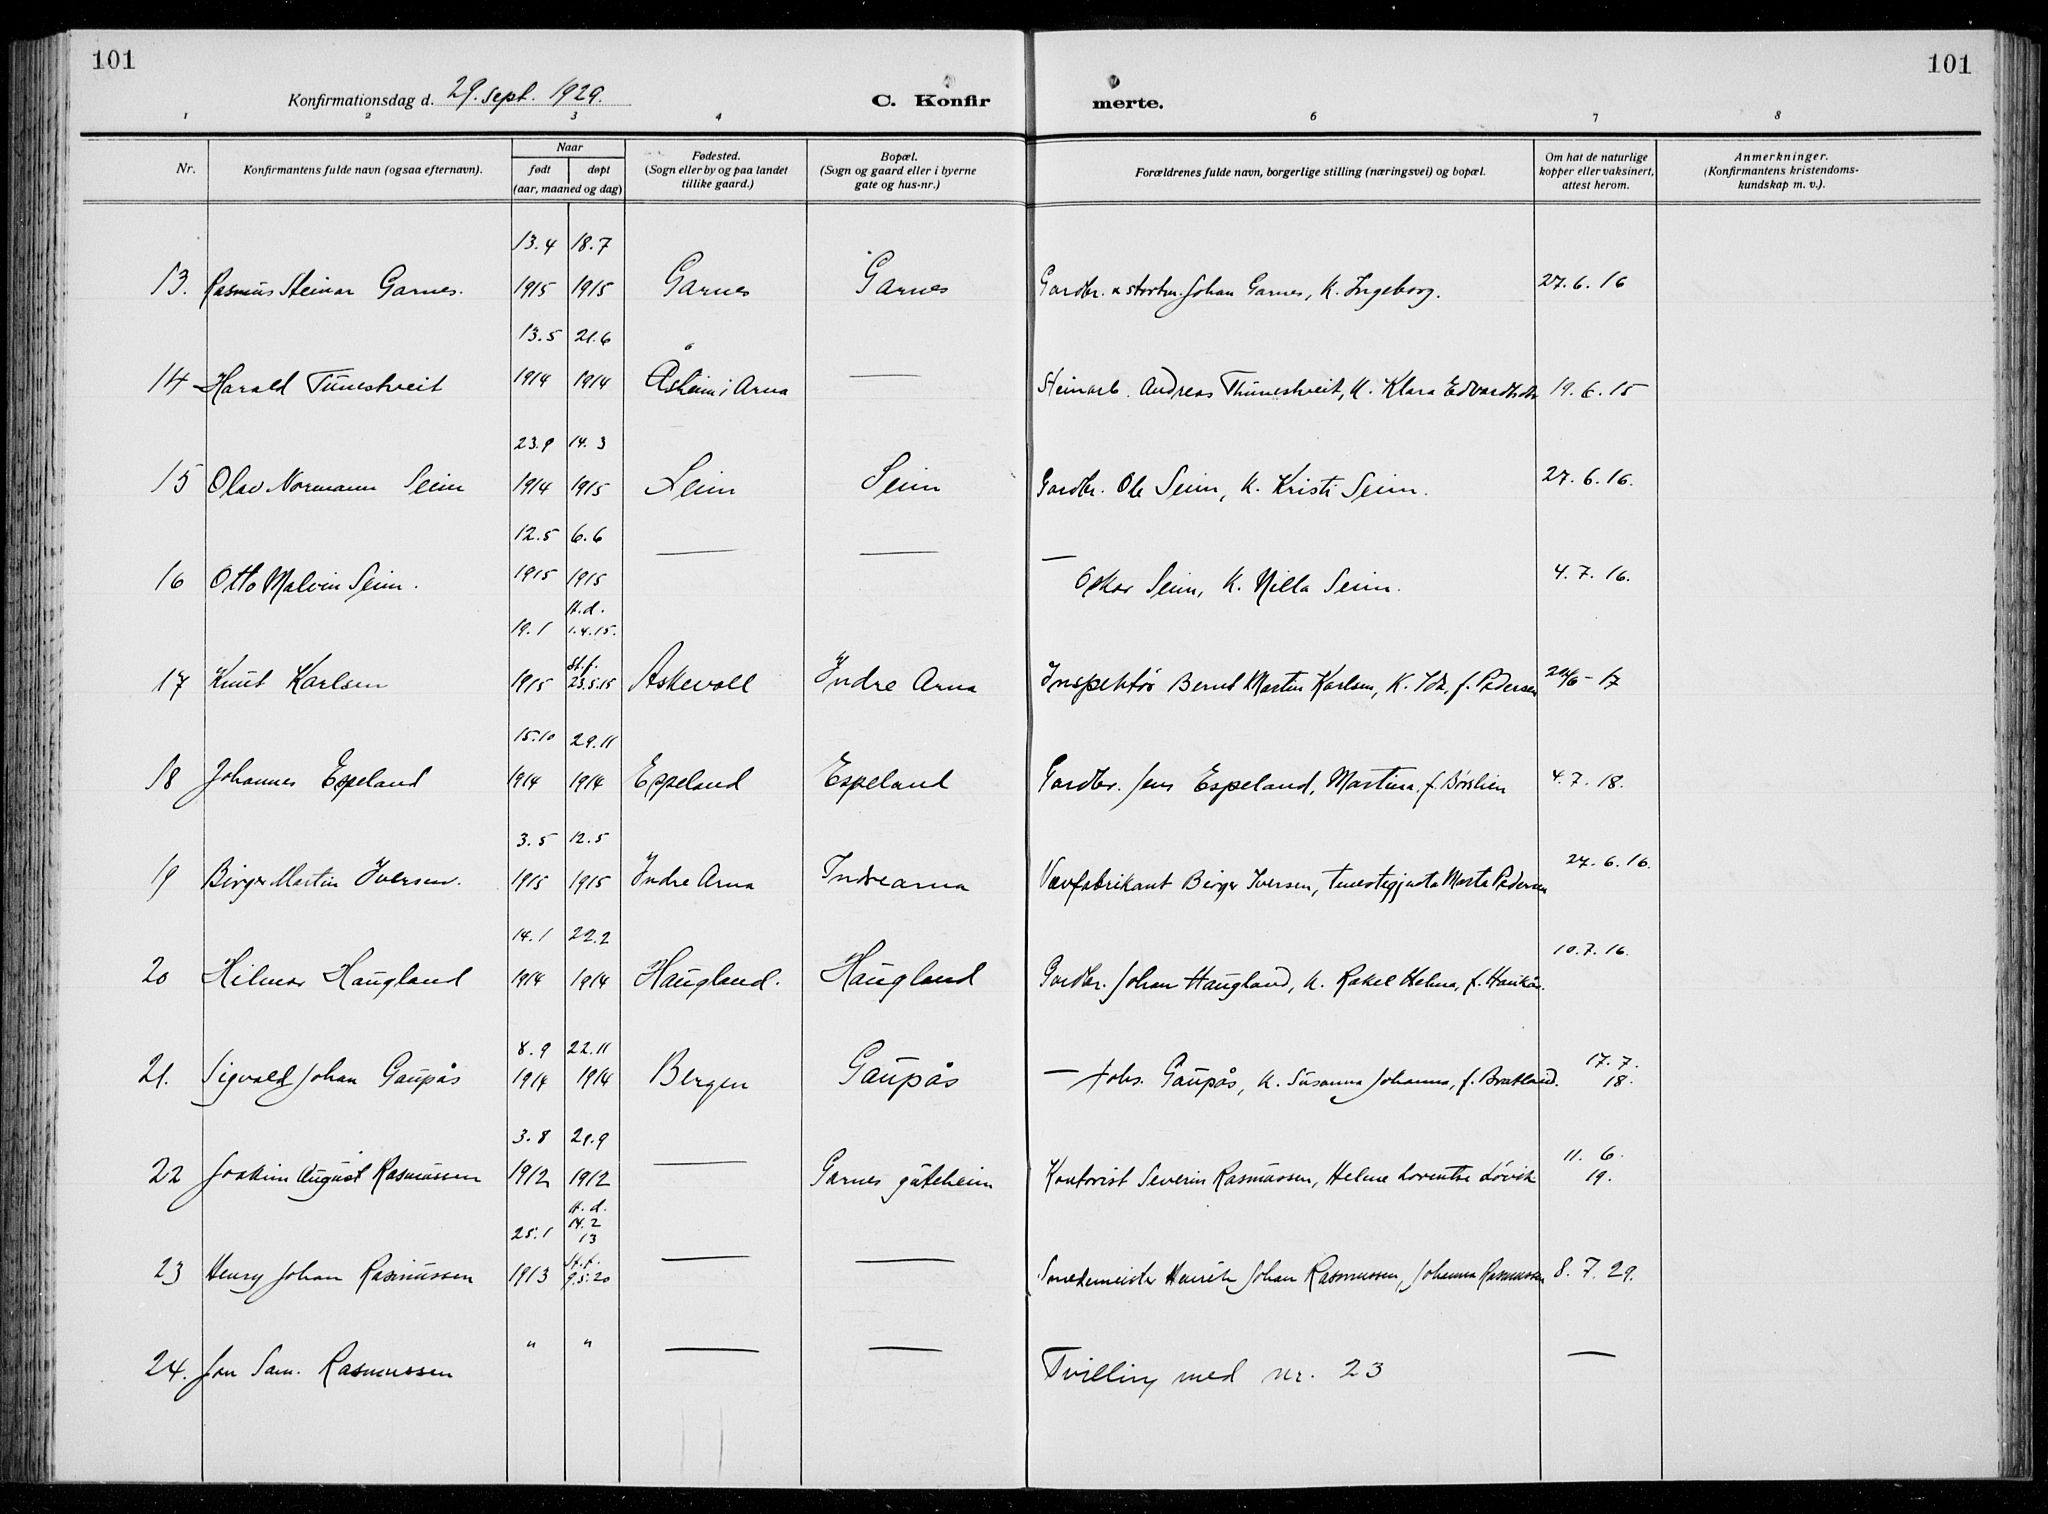 101
101
Konfirmationsdag d. 29. sept. 1929.
C. Konfir merte.
1 2 3 4 5 6 7 8
Nr.
Konfirmantens fulde navn (ogsaa efternavn).
Naar
født døpt
(aar, maaned og dag)
Fødested.
(Sogn eller by og paa landet
tillike gaard.)
Bopæl.
(Sogn og gaard eller i byerne
gate og hus-nr.)
Forældrenes fulde navn, borgerlige stilling (næringsvei) og bopæl.
Om hat de naturlige
kopper eller vaksinert,
attest herom.
Anmerkninger.
(Konfirmantens kristendoms-
kundskap m. v.).
13.4 18.7
13. Rasmus Steinar Garnes. 1915 1915 Garnes Garnes Gardbr. & stortm. Johan Garnes, K. Ingeborg. 27.6.16
13.5 21.6
14 Harald Tunestveit 1914 1914 Åsheim i Arna — Steinarb. Andreas Thunestveit, K. Klara Edvardsdtr 19.6.15
23.9 14.3
15 Olav Normann Seim 1914 1915 Seim Seim Gardbr. Ole Seim, K. Kristi Seim. 27.6.16.
12.5 6.6
16 Otto Malvin Seim. 1915 1915 — — — Oskar Seim, K. Nilla Seim. 4.7.16.
19.1 H.d. 1.4.15.
17 Knut Karlsen 1915 St.f. 23.5.15 Askevoll Indre Arna Inspektør Bernt Martin Karlsen, K. Ida, f. Pedersen 24/6-17
15.10 29.11
18 Johannes Espeland 1914 1914 Espeland Espeland Gardbr. Jens Espeland, Martina, f. Børslien 4.7.18.
3.5 12.5
19 Birger Martin Iversen. 1915 1915 Indre Arna Indrearna Vævfabrikant Birger Iversen, tenestegjenta Marta Pedersen 27.6.16.
14.1 22.2
20 Hilmar Haugland 1914 1914 Haugland. Haugland Gardbr. Johan Haugland, K. Rakel Helma, f. Haukås. 10.7.16.
8.9 22.11
21. Sigvald Johan Gaupås 1914 1914 Bergen Gaupås — Johs. Gaupås, K. Susanna Johanna, f. Bratland. 17.7. 18.
3.8 29.9
22 Joakim August Rasmussen 1912 1912 — Garnes guteheim Kontorist Severin Rasmussen, Helene Lorentse Løvik 11.6. 19.
25.1 H.d. 14.2 13
23 Henry Johan Rasmussen 1913 St.f. 9.5.20 — — Smedemeister Henrik Johan Rasmussen, Johanna Rasmussen 8.7.29.
" "
24. Jon Sam. Rasmussen — — Tvilling med nr. 23 —